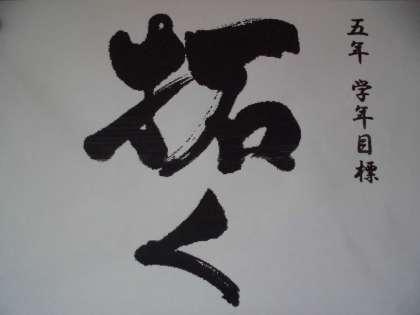 五年 学年目標
拓く